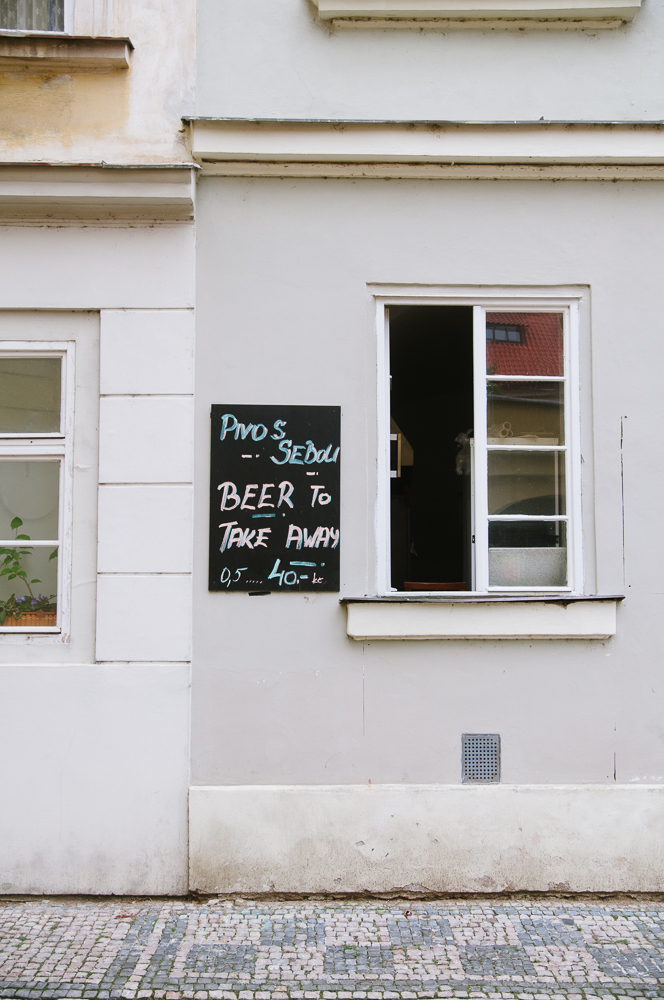 PIVO S
SEBOU
BEER TO
TAKE AWAY
0,5..... 40.- kč